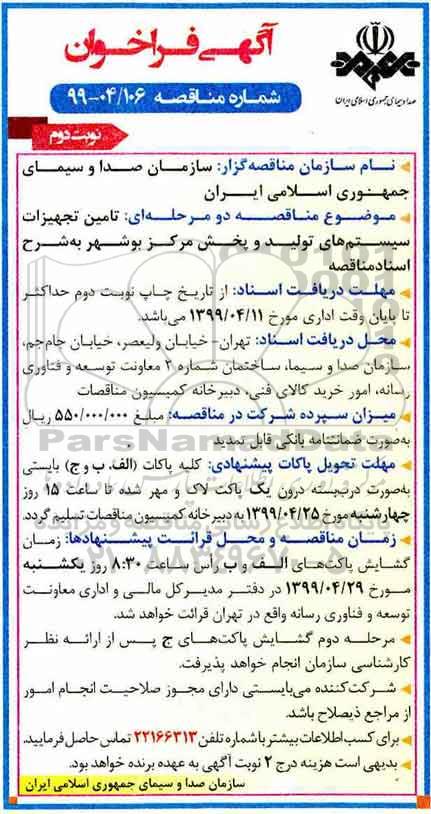 آگهی فراخوان
صدا و سیمای جمهوری اسلامی ایران
شماره مناقصه ۹۹-۰۴/۱۰۶
نوبت دوم
نـام سازمان مناقصه‌گزار: سازمان صدا و سیمای
جمهوری اسلامی ایران
موضوع مناقصه دو مرحله‌ای: تامین تجهیزات
سیستم‌های تولید و پخش مرکز بوشهر به‌شرح
اسناد مناقصه
مهلت دریافت اسناد: از تاریخ چاپ نوبت دوم حداکثر
تا پایان وقت اداری مورخ ۱۳۹۹/۰۴/۱۱ می‌باشد.
محل دریافت اسناد: تهران- خیابان ولیعصر، خیابان جام‌جم،
سازمان صدا و سیما، ساختمان شماره ۲ معاونت توسعه و فناوری
رسانه، امور خرید کالای فنی، دبیرخانه کمیسیون مناقصات
میزان سپرده شرکت در مناقصه: مبلغ ۵۵۰/۰۰۰/۰۰۰ ریال
به‌صورت ضمانتنامه بانکی قابل تمدید
مهلت تحویل پاکات پیشنهادی: کلیه پاکات (الف، ب و ج) بایستی
به‌صورت دربسته درون یک پاکت لاک و مهر شده تا ساعت ۱۵ روز
چهارشنبه مورخ ۱۳۹۹/۰۴/۲۵ به دبیرخانه کمیسیون مناقصات تسلیم گردد.
زمان مناقصه و محل قرائت پیشنهادها: زمان
گشایش پاکت‌های الف و ب رأس ساعت ۸:۳۰ روز یکشنبه
مورخ ۱۳۹۹/۰۴/۲۹ در دفتر مدیرکل مالی و اداری معاونت
توسعه و فناوری رسانه واقع در تهران قرائت خواهد شد.
مرحله دوم گشایش پاکت‌های ج پس از ارائه نظر
کارشناسی سازمان انجام خواهد پذیرفت.
شرکت‌کننده می‌بایستی دارای مجوز صلاحیت انجام امور
از مراجع ذیصلاح باشد.
برای کسب اطلاعات بیشتر با شماره تلفن ۲۲۱۶۶۳۱۳ تماس حاصل فرمایید.
بدیهی است هزینه درج ۲ نوبت آگهی به عهده برنده خواهد بود.
سازمان صدا و سیمای جمهوری اسلامی ایران